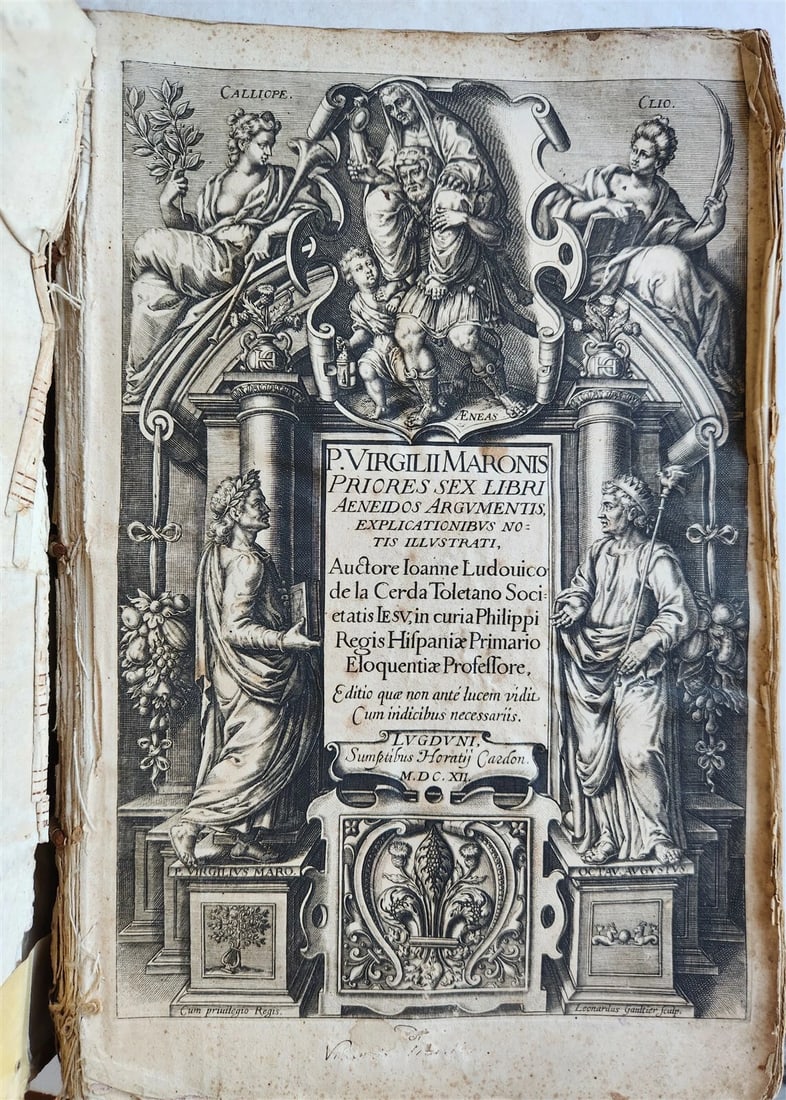 CALLIOPE.
CLIO.
ÆNEAS
P. VIRGILII MARONIS
PRIORES SEX LIBRI
AENEIDOS ARGVMENTIS,
EXPLICATIONIBVS NO=
TIS ILLVSTRATI,
Auctore Ioanne Ludouico
de la Cerda Toletano Soci=
etatis IESV, in curia Philippi
Regis Hiſpaniæ Primario
Eloquentiæ Profeſſore,
Editio quæ non anté lucem vidit
Cum indicibus necessariis.
LVGDVNI,
Sumptibus Horatij Cardon.
M.DC.XII.
P. VIRGILIVS MARO.
OCTAV. AVGVSTVS
Cum priuilegio Regis.
Leonardus Gaultier ſculp.